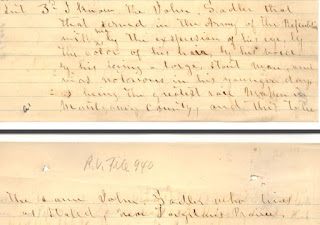 Int 3rd I Know the John Sadler that
that served in the Army of the Republic
with me by the expression of his eye, by
the color of his hair, by his voice
by his being a large, stout man, and
was notorious in his younger days
as being the greatest Rail Mauler in
Montgomery County, and that to be
R.V. File 940
the same John Sadler who lives
as stated, near Prairie,